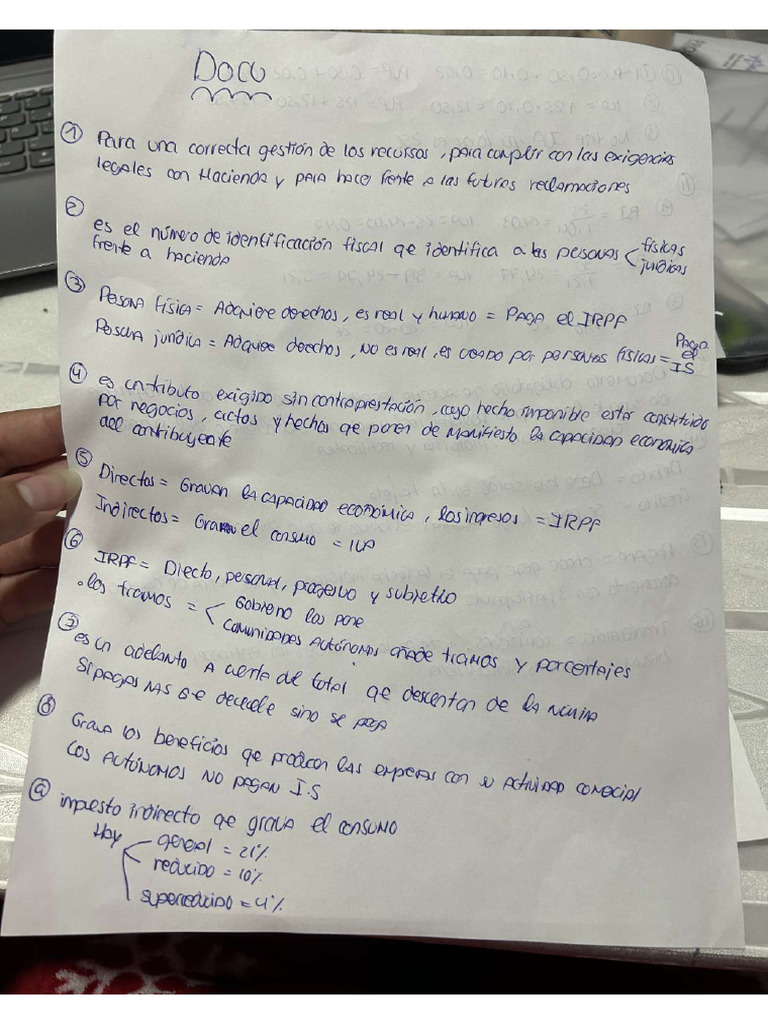 Docu
① Para una correcta gestión de los recursos, para cumplir con las exigencias
legales con Hacienda y para hacer frente a las futuras reclamaciones
②
es el número de identificación fiscal qe identifica a las personas < físicas
jurídicas
frente a hacienda
③ Persona física = Adquiere derechos, es real y humano = PAGA el IRPF
Persona jurídica = Adquiere derechos, No es real, es creado por personas físicas = Paga el IS
④ es un tributo exigido sin contraprestación, cuyo hecho imponible está constituido
por negocios, actos y hechos qe ponen de manifiesto la capacidad económica
del contribuyente
⑤ Directos = Gravan la capacidad económica, los ingresos = IRPF
Indirectos = Gravan el consumo = IVA
⑥ IRPF = Directo, personal, progresivo y subjetivo
• los tramos = < Gobierno los pone
Comunidades Autónomas añade tramos y porcentajes
⑦ es un adelanto a cuenta del total qe descuentan de la nómina
Si pagas mas se devuelve sino se paga
⑧ Grava los beneficios qe producen las empresas con su actividad comercial
Los autónomos no pagan I.S
⑨ impuesto indirecto qe grava el consumo
Hay < general = 21%
reducido = 10%
superreducido = 4%